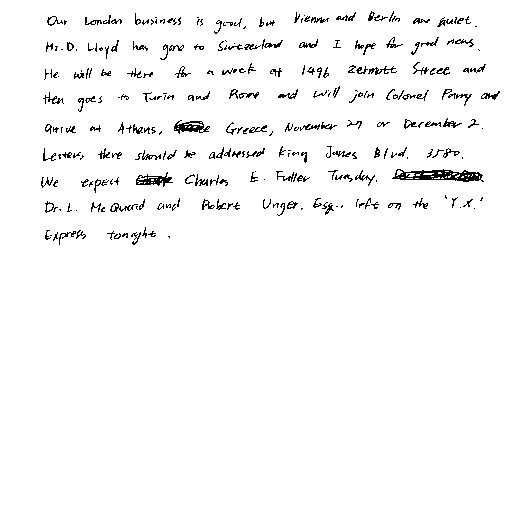 Our London business is good, but Vienna and Berlin are quiet.
Mr. D. Lloyd has gone to Switzerland and I hope for good news.
He will be there for a week at 1496 Zermott Street and
then goes to Turin and Rome and will join Colonel Parry and
arrive at Athens, Greece, November 27 or December 2.
Letters there should be addressed King James Blvd. 3580.
We expect Charles E. Fuller Tuesday.
Dr. L. McQuaid and Robert Unger. Esq.. left on the 'Y.X.'
Express tonight.